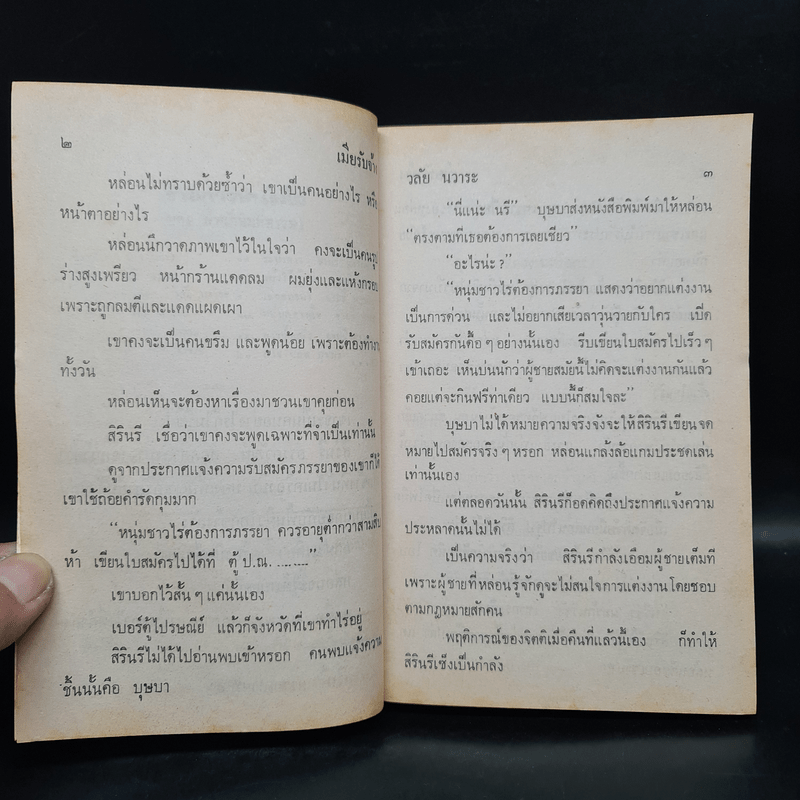 ๒
เมียรับจ้าง
หล่อนไม่ทราบด้วยซ้ำว่า เขาเป็นคนอย่างไร หรือ
หน้าตาอย่างไร
หล่อนนึกวาดภาพเขาไว้ในใจว่า คงจะเป็นคนรูป
ร่างสูงเพรียว หน้ากร้านแดดลม ผมยุ่งและแห้งกรอบ
เพราะถูกลมตีและแดดแผดเผา
เขาคงจะเป็นคนขรึม และพูดน้อย เพราะต้องทำงาน
ทั้งวัน
หล่อนเห็นจะต้องหาเรื่องมาชวนเขาคุยก่อน
สิรินรี เชื่อว่าเขาคงจะพูดเฉพาะที่จำเป็นเท่านั้น
ดูจากประกาศแจ้งความรับสมัครภรรยาของเขาก็ได้
เขาใช้ถ้อยคำรัดกุมมาก
“หนุ่มชาวไร่ต้องการภรรยา ควรอายุต่ำกว่าสามสิบ
ห้า เขียนใบสมัครไปได้ที่ ตู้ ป.ณ. .........”
เขาบอกไว้สั้น ๆ แค่นั้นเอง
เบอร์ตู้ไปรษณีย์ แล้วก็จังหวัดที่เขาทำไร่อยู่
สิรินรีไม่ได้ไปอ่านพบเข้าหรอก คนพบแจ้งความ
ชิ้นนั้นคือ บุษบา
วลัย นวาระ
๓
“นี่แน่ะ นรี” บุษบาส่งหนังสือพิมพ์มาให้หล่อน
“ตรงตามที่เธอต้องการเลยเชียว”
“อะไรน่ะ ?”
“หนุ่มชาวไร่ต้องการภรรยา แสดงว่าอยากแต่งงาน
เป็นการด่วน และไม่อยากเสียเวลาวุ่นวายกับใคร เปิด
รับสมัครกันดื้อ ๆ อย่างนั้นเอง รีบเขียนใบสมัครไปเร็ว ๆ
เข้าเถอะ เห็นบ่นนักว่าผู้ชายสมัยนี้ไม่คิดจะแต่งงานกันแล้ว
คอยแต่จะกินฟรีท่าเดียว แบบนี้ก็สมใจละ”
บุษบาไม่ได้หมายความจริงจังจะให้สิรินรีเขียนจด
หมายไปสมัครจริง ๆ หรอก หล่อนแกล้งล้อแกมประชดเล่น
เท่านั้นเอง
แต่ตลอดวันนั้น สิรินรีก็อดคิดถึงประกาศแจ้งความ
ประหลาดนั้นไม่ได้
เป็นความจริงว่า สิรินรีกำลังเอือมผู้ชายเต็มที
เพราะผู้ชายที่หล่อนรู้จักดูจะไม่สนใจการแต่งงานโดยชอบ
ตามกฎหมายสักคน
พฤติการณ์ของจิตติเมื่อคืนที่แล้วนี้เอง ก็ทำให้
สิรินรีเซ็งเป็นกำลัง